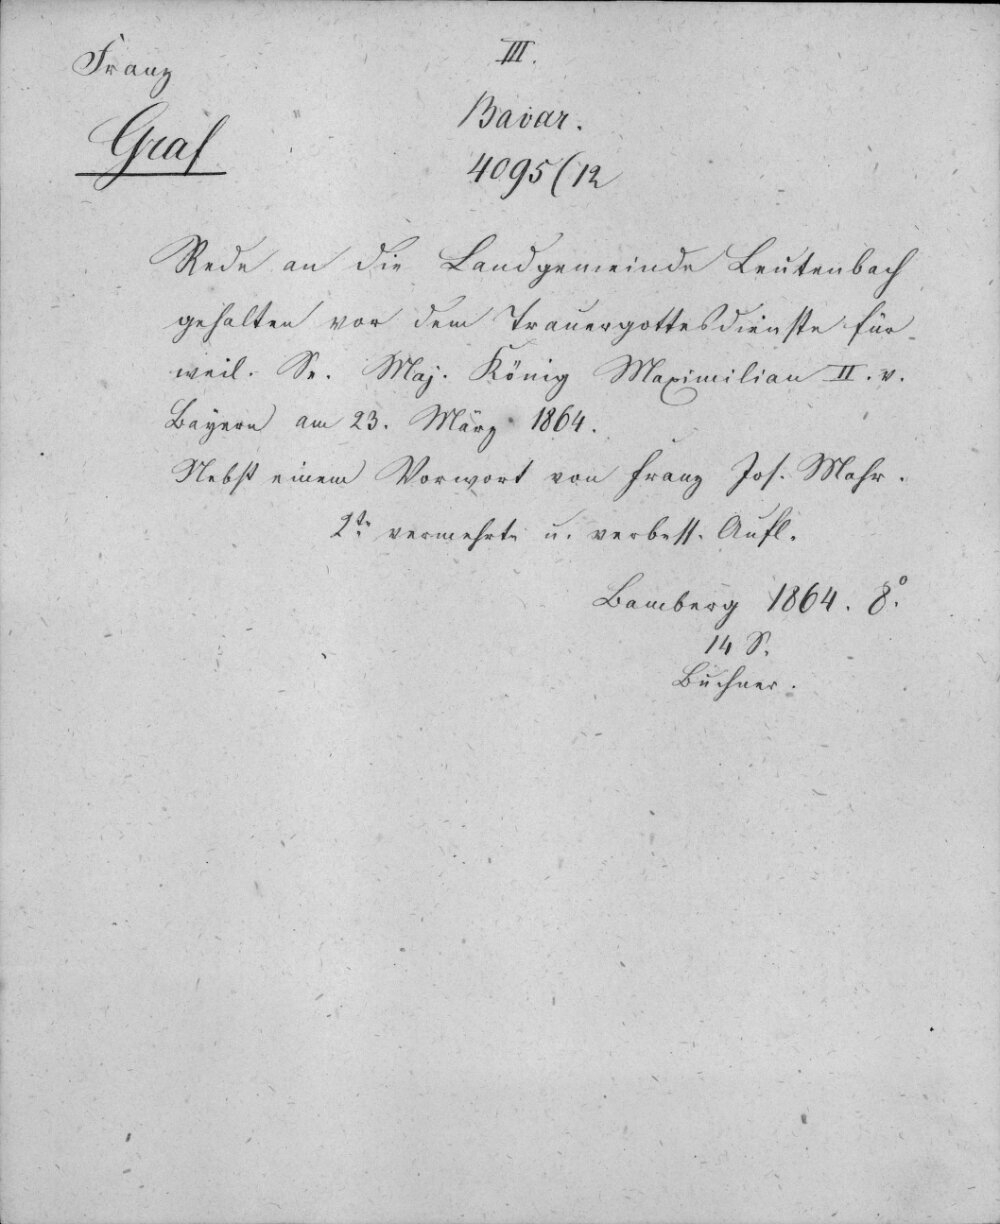 Franz
Graf
III.
Bavar.
4095(12
Rede an die Landgemeinde Leutenbach
gehalten vor dem Trauergottesdienste für
weil. Sr. Maj. König Maximilian II. v.
Bayern am 23. März 1864.
Nebst einem Vorwort von Franz Jos. Mahr.
2te vermehrte u. verbess. Aufl.
Bamberg 1864. 8°.
14 S.
Buchner.